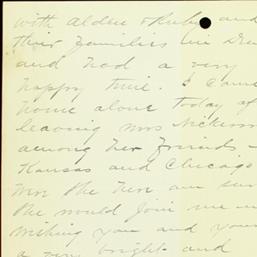 with Alden & Ruby and
their families in Den
and had a very
happy time. I came
home alone today af
leaving Mrs Nickerson
among her friends -
Kansas and Chicago
Were she here am sure
she would join me in
wishing you and your
a very bright and